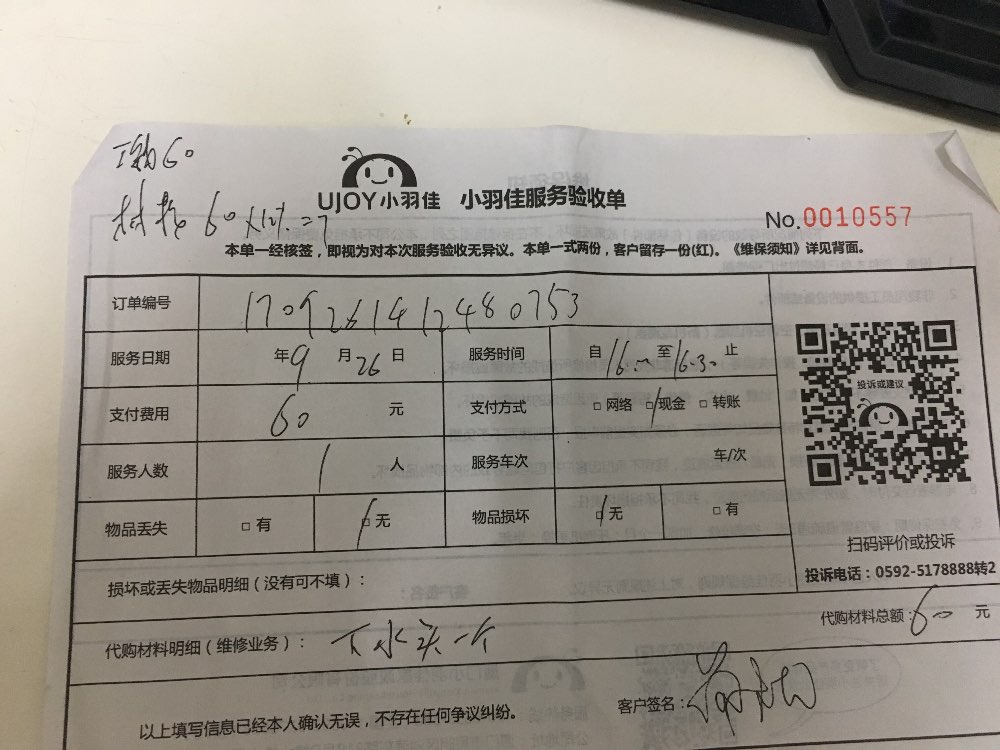 工费60
材料 60×12%=7
UJOY小羽佳 小羽佳服务验收单
No.0010557
本单一经核签，即视为对本次服务验收无异议。本单一式两份，客户留存一份(红)。《维保须知》详见背面。
订单编号 1709261412480753
服务日期 年9月26日 服务时间 自16:00至16:30止
支付费用 60 元 支付方式 □网络 □现金 □转账
投诉或建议
服务人数 1 人 服务车次 车/次
物品丢失 □有 □无 物品损坏 □无 □有
扫码评价或投诉
投诉电话：0592-5178888转2
损坏或丢失物品明细（没有可不填）：
代购材料明细（维修业务）： 下水头一个 代购材料总额：60 元
以上填写信息已经本人确认无误，不存在任何争议纠纷。 客户签名：